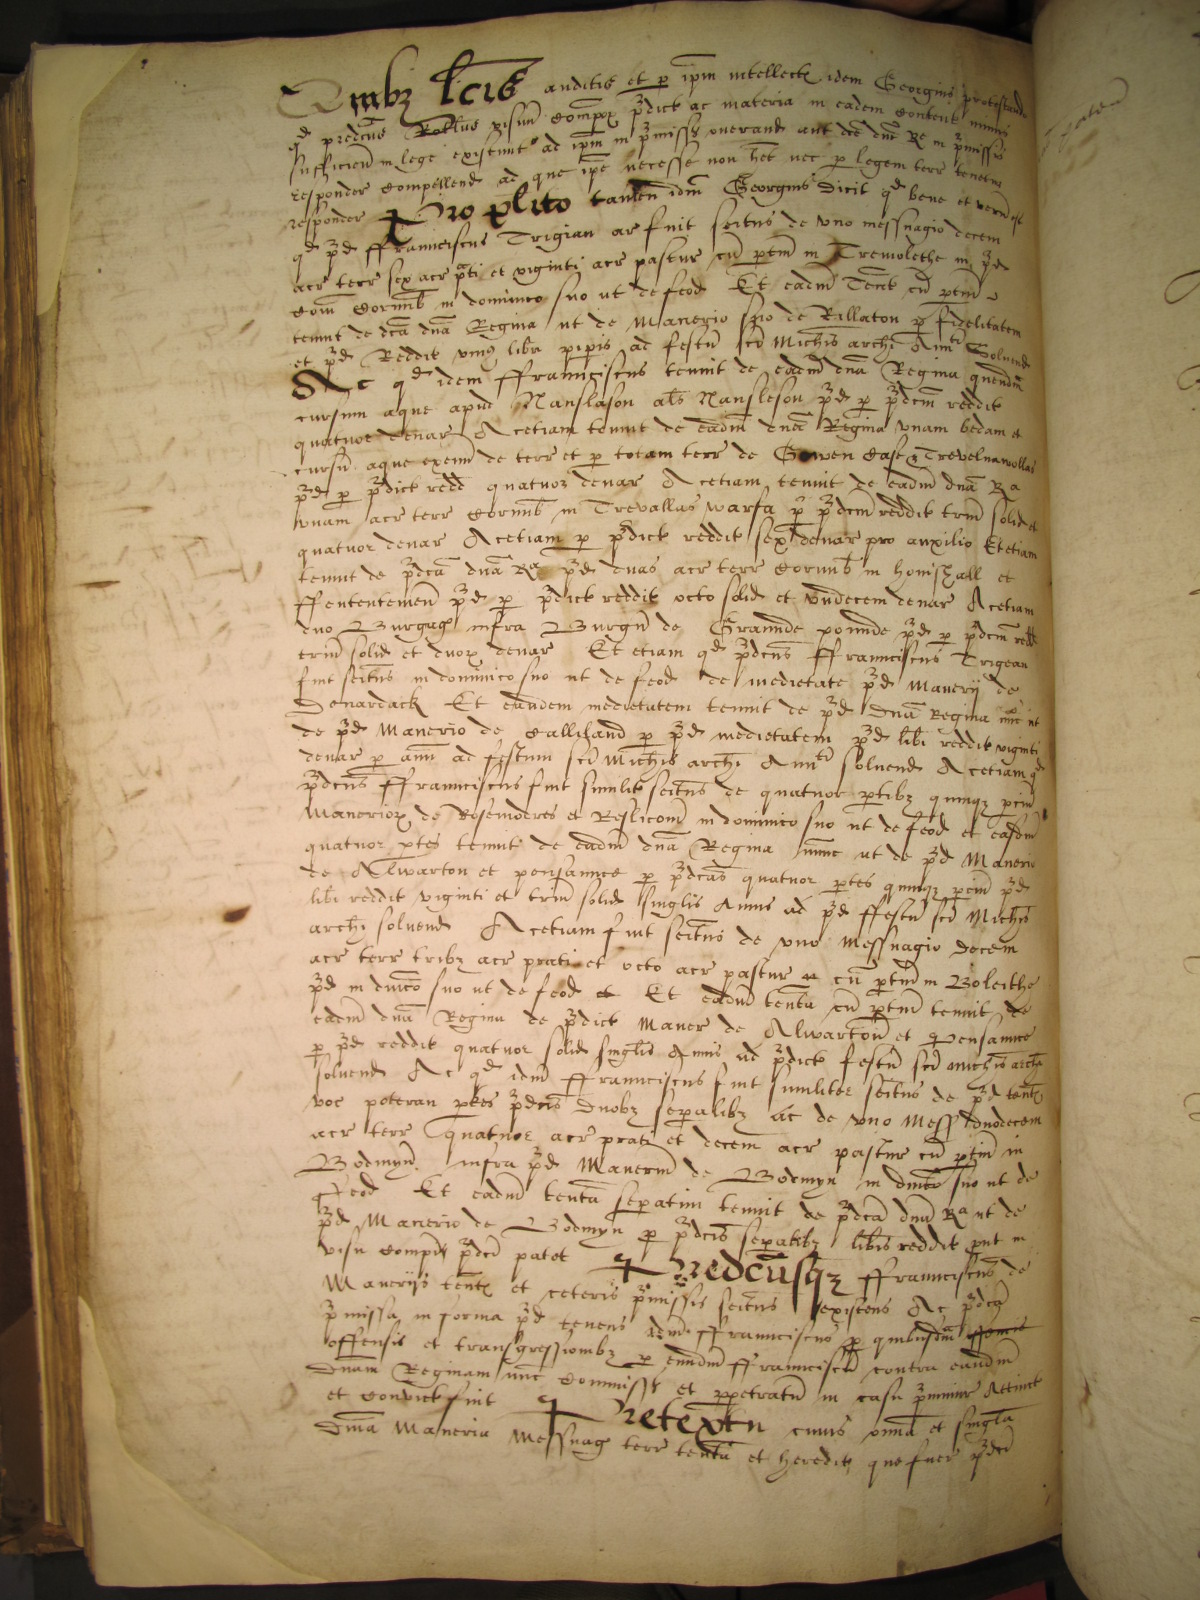 Quibz lcis auditis et p ipm intellect idem Georgius protestando
qd predcus Rotulus visum compoi pdict ac materia in eadem content minus
sufficien in lege existunt ad ipm in pmissis onerand aut dce dne Re in pmissis
responder compellend ad que ipe necesse non het nec p legem terr tenetur
responder Pro plito tamen idm Georgius dicit qd bene et verum est
qd pd ffranciscus Trigian ar fuit seitus de uno messuagio decem
acr terr sex acr pti et viginti acr pastur cu ptin in Tremolethe in pd
Com Cornub in dominico suo ut de feod Et eadm Tent cu ptin
tenuit de dca dna Regina ut de Manerio suo de Rillaton p fidelitatem
et pd Reddit unius libr piperis ad festu sci Michis archi Annti Solvend
Ac qd idem ffranciscus tenuit de eadm dna Regina quendm
cursum aque apud Nanslason als Nansleson pd p pdcm reddit
quatuor denar Acetiam tenuit de eadm dna Regina unam bedam et
cursu aque exeun de terr et p totam terr de Gowen Case & Trevelnawollas
pd p pdict redd quatuor denar Acetiam tenuit de eadm dna Ra
unam acr terr Cornub in Trevallas warfa p pdcm reddit trin solid et
quatuor denar Acetiam p pdict reddit sex denar pro auxilio Et etiam
tenuit de pdca dna Ra pd duas acr terr cornub in homshall et
ffententemen pd p pdict reddit octo solid et undecem denar Acetiam
duo Burgag infra Burgu de Graunde pounde pd p pdcm redd
triu solid et duox denar Et etiam qd pdcus ffranciscus Trigean
fuit seitus in dominico suo ut de feod de medietate pd Manerij de
Denardack Et eandem medietatem tenuit de pd dna Regina nuc ut
de pd Manerio de Callistand p pd medietatem pd libi reddit viginti
denar p ann ad festum sci Michis archi Annti solvend Acetiam qd
pdcus ffranciscus fuit similit seitus de quatuor ptibz quinqz pciu
Maneriox de Rosemodres et Reslicom in dominico suo ut de feod et easdm
quatuor ptes tenuit de eadm dna Regina nunc ut de pd Manerio
de Alwarton et pensannce p pdcas quatuor ptes quinqz pciu pd
libi reddit viginti et triu solid singlis Annis ad pd ffestu sci Michis
archi solvend Acetiam fuit seitus de uno Messuagio decem
acr terr tribz acr prati et octo acr pastur cu ptin in Boleithe
pd in dnico suo ut de feod Et eadm tenta cu ptin tenuit de
eadm dna Regina de pdict Maner de Alwarton et Pensannce
p pd reddit quatuor solid singlis Annis ad pdict festu sci Michis archi
solvend Ac qd idm ffranciscus fuit similiter seitus de pd tent
voc peteran pkes pdcis duobz sepalibz ac de uno Mess duodecem
acr terr quatuor acr prati et decem acr pastur cu ptin in
Bodmyn infra pd Maneriu de Bodmyn in dnico suo ut de
ffeod Et eadm tenta sepatim tenuit de pdca dna Ra ut de
pd Manerio de Bodmyn p pdcis sepalibz libis reddit put in
visu compi pdci patet Predcusqz ffranciscus de
Manerijs tent et ceteris pmissis seitus existens Ac pdca
pmissa in forma pd tenens idm ffranciscus p quibusdm
offensis et transgressionibz p eundm ffranciscu contra eandm
dnam Reginam nuc commissis et ppetratis in casu pmunire Attinct
et convict fuit Pretextu cuius omia et singla
dna Maneria Messuag terr tenta et heredit que fuer pdci